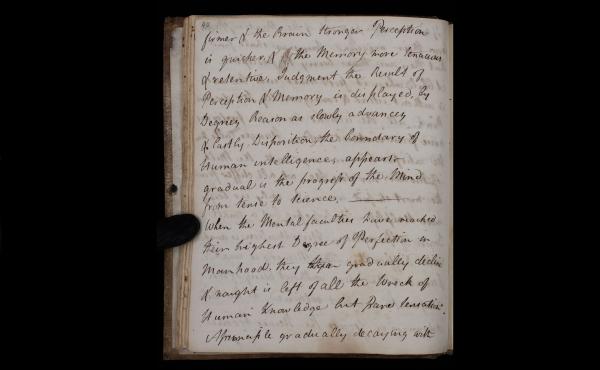 40
firmer & the Brain stronger Perception
is quicker, & the Memory more tenacious
& retentive, Judgment the Result of
Perception & Memory is displayed, by
Degrees Reason as slowly advances
& lastly Disposition, the boundary of
Human intelligences appears
gradual is the progress of the Mind
from sense to science. ———
When the Mental faculties have reached
their highest Degree of Perfection in
Manhood they gradually decline
& naught is left of all the Wreck of
Human Knowledge but Bare Sensation.
A principle gradually decaying with